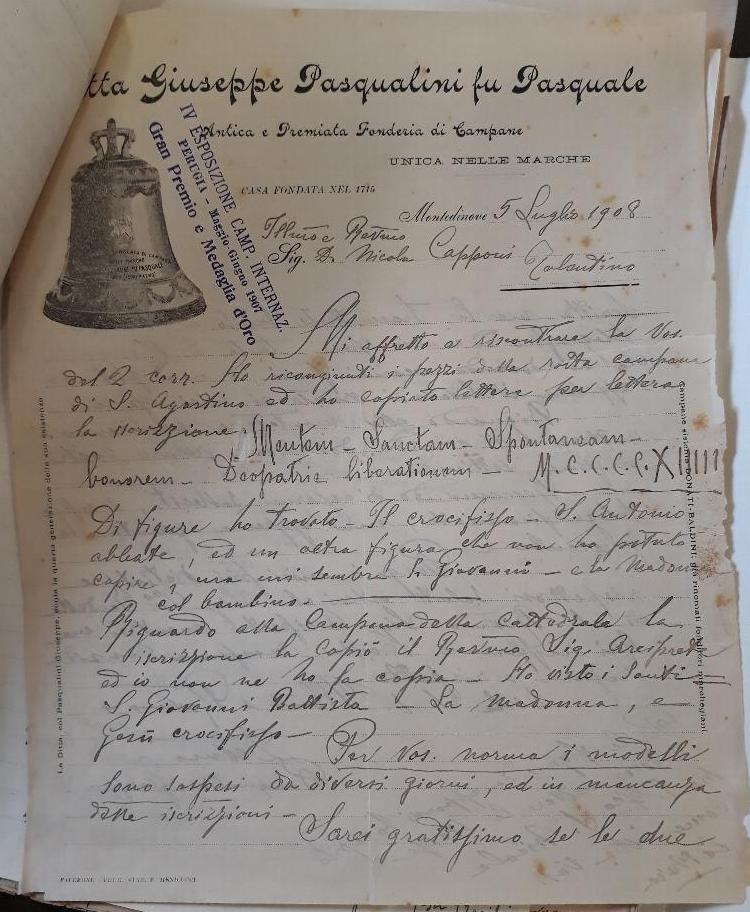 tta Giuseppe Pasqualini fu Pasquale
Antica e Premiata Fonderia di Campane
UNICA NELLE MARCHE
CASA FONDATA NEL 1715
IV ESPOSIZIONE CAMP. INTERNAZ.
PERUGIA - Maggio-Giugno 1907
Gran Premio e Medaglia d'Oro
Montedinove 5 Luglio 1908
Illmo e Revmo
Sig. D. Nicola Capponi
Tolentino
Mi affretto a riscontrare la Vos.
del 2 corr. Ho ricongiunti i pezzi della rotta campana
di S. Agostino ed ho copiato lettera per lettera
la iscrizione: Mentem - Sanctam - Spontaneam -
bonorem - Deopatrie liberationem - M.C.C.C.C.XIIIII
Di figure ho trovato - Il crocifisso - S. Antonio
abbate, ed un altra figura che non ho potuto
capire, ma mi sembra S. Giovanni - e la Madonna
col bambino -
Riguardo alla Campana della Cattedrale la
iscrizione la copiò il Revmo Sig. Arciprete
ed io non ne ho fa copia - Ho visto i Santi -
S. Giovanni Battista - La madonna, e -
Gesù crocifisso -
Per Vos. norma i modelli
sono sospesi da diversi giorni, ed in mancanza
delle iscrizioni -
Sarei gratissimo se le due
La Ditta, col Pasqualini Giuseppe, conta la quarta generazione della sua esistenza
DONATI-BALDINI, già rinomati fonditori